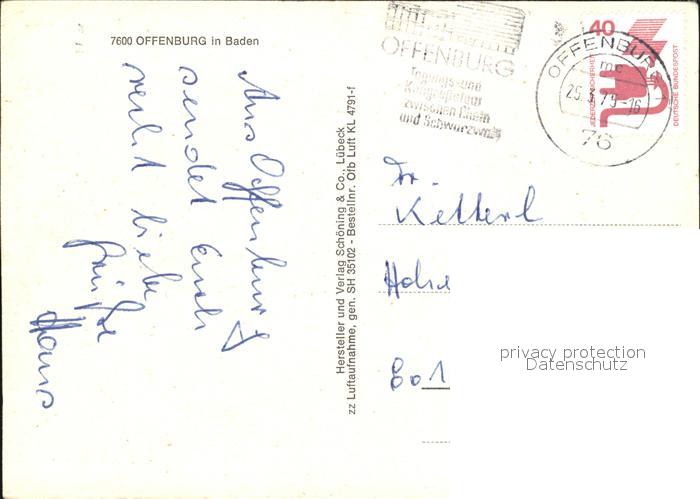 7600 OFFENBURG in Baden
Aus Offenburg
sendet Euch
recht liebe
Grüße
Hans
Hersteller und Verlag Schöning & Co., Lübeck
zz Luftaufnahme, gen. SH 35102 - Bestellnr. Ofb Luft KL 4791-f
OFFENBURG
Tagungs- und
Kongreßplatz
zwischen Rhein
und Schwarzwald
OFFENBURG
mc
76
40
JEDERZEIT SICHERHEIT
DEUTSCHE BUNDESPOST
Ketterl
801
privacy protection
Datenschutz